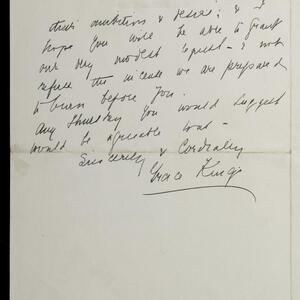 their ambition & desire; & I
hope you will be able to grant
our very modest request - & not
refuse the incense we are prepared
to burn before you.
Any Thursday you would suggest
would be agreeable to us -
Sincerely & Cordially
Grace King